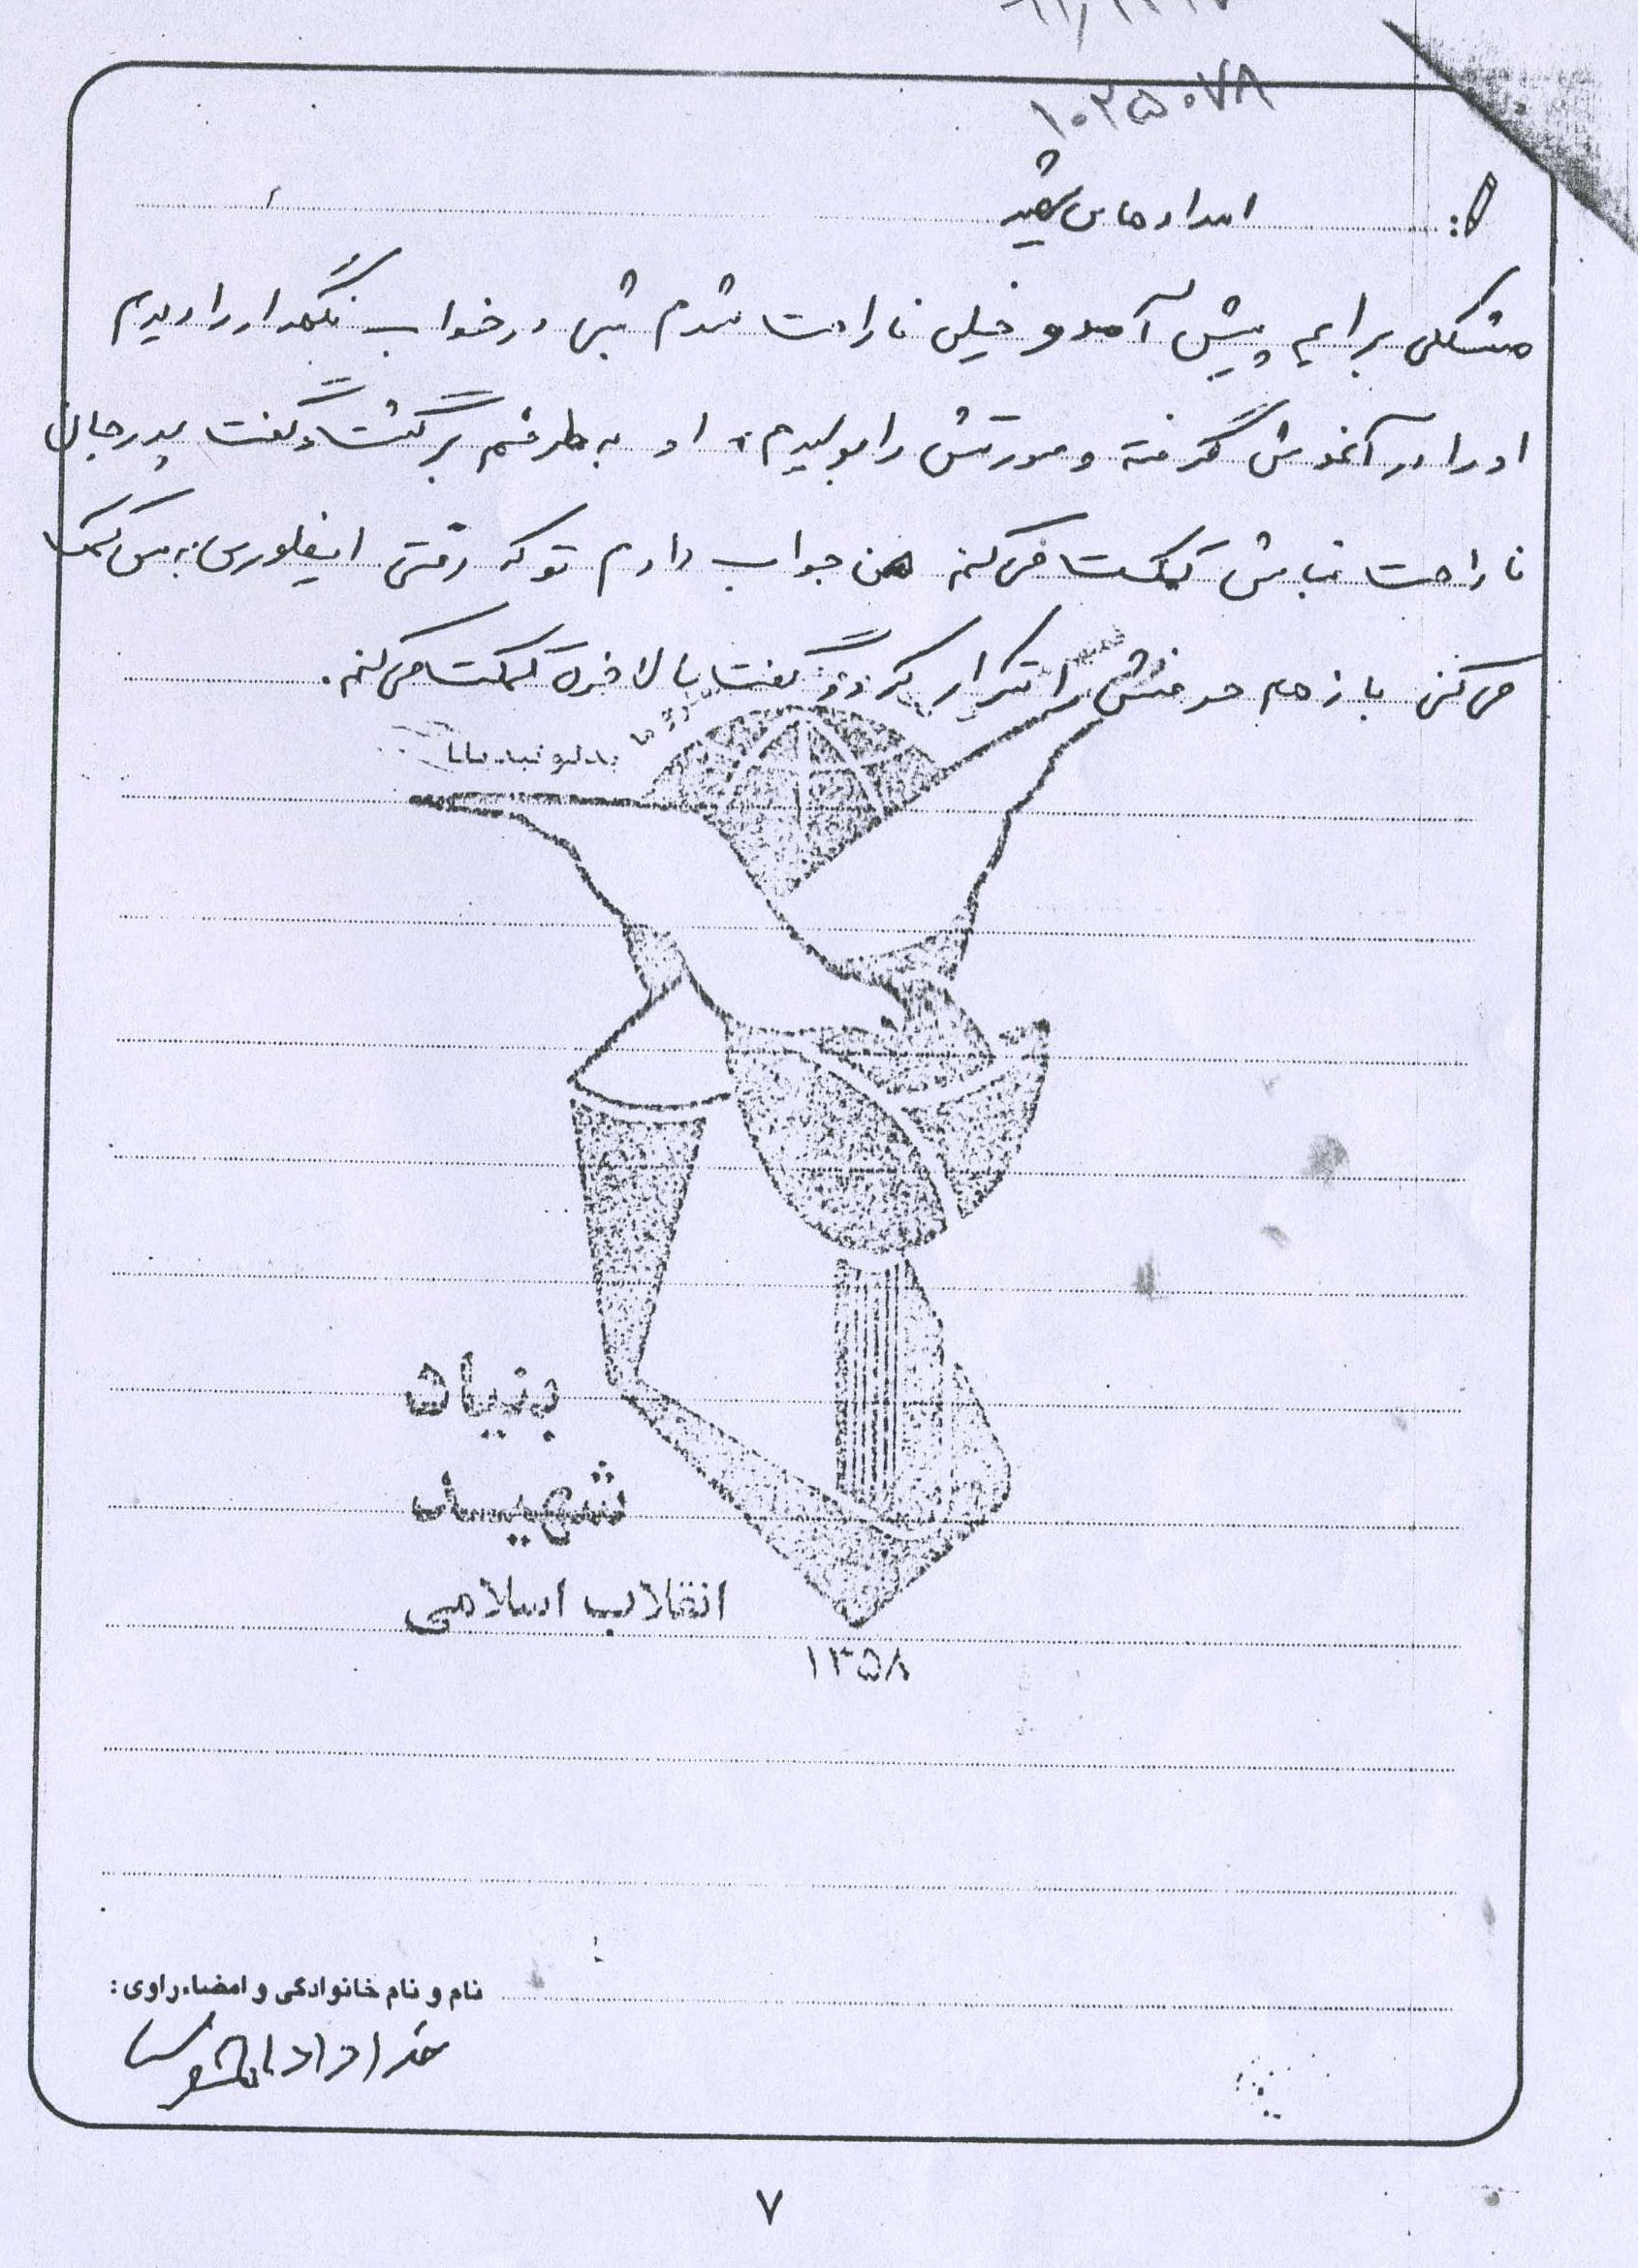 ۱۰۲۵۰۷۸
امدادهای شهید
مشکلی برایم پیش آمد و خیلی ناراحت شدم شبی در خواب نگهدار را دیدم
او را در آغوش گرفته و صورتش را بوسیدم، او به طرفم برگشت و گفت پدر جان
ناراحت نباش کمکت می کنم من جواب دادم تو که رفتی اینطوری به من کمک
می کنی باز هم حرفش را تکرار کرد و گفت بالاخره کمکت می کنم.
بنیاد
شهید
انقلاب اسلامی
۱۳۵۸
نام و نام خانوادگی و امضاء راوی:
خداداد
۷